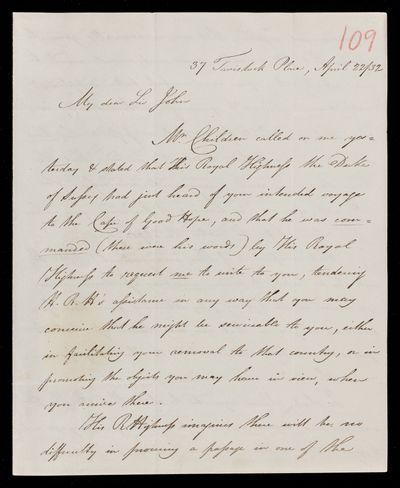 109
37 Tavistock Place, April 22/32
My dear Sir John
Mr. Children called on me yes=
terday & stated that His Royal Highness the Duke
of Sussex had just heard of your intended voyage
to the Cape of Good Hope, and that he was com=
manded (these were his words) by His Royal
Highness to request me to write to you, tendering
H. R. H's assistance in any way that you may
conceive that he might be serviceable to you, either
in facilitating your removal to that country, or in
promoting the objects you may have in view, when
you arrive there.
His R. Highness imagines there will be no
difficulty in procuring a passage in one of the